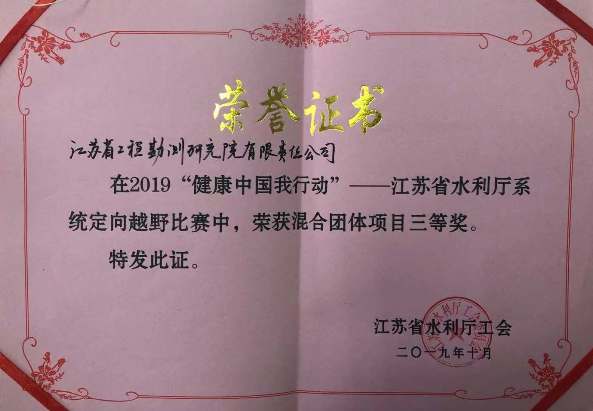 荣誉证书
江苏省工程勘测研究院有限责任公司
在2019“健康中国我行动”——江苏省水利厅系
统定向越野比赛中，荣获混合团体项目三等奖。
特发此证。
江苏省水利厅工会
二〇一九年十月